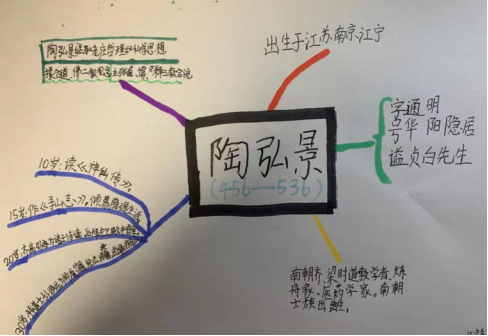 陶弘景继承老庄哲理和葛洪仙学思想
揉合道、佛二教观念主张儒、释、道三教合流
出生于江苏南京江宁
陶弘景
(456—536)
字通明
号华阳隐居
谥贞白先生
10岁:读《神仙传》,
15岁:作《寻山志》,倾慕隐逸生活
20岁:
30岁:
南朝齐、梁时道教学者、炼
丹家、医药学家。南朝
士族出身。